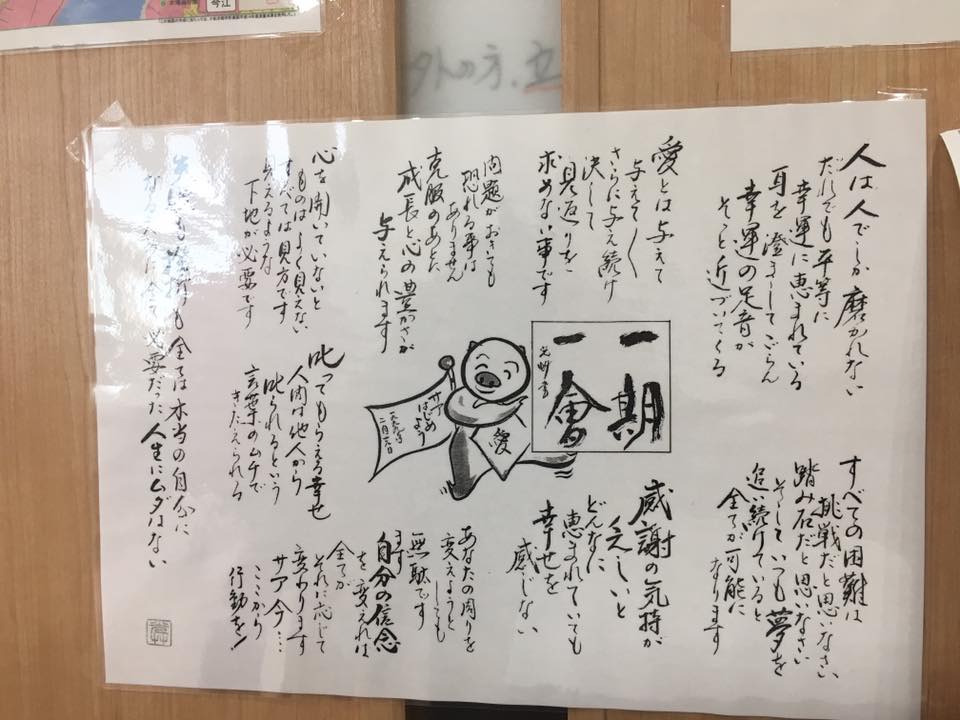 今江
外の方、立
人は人でしか磨かれない
だれでも平等に
幸運に恵まれている
耳を澄ましてごらん
幸運の足音が
そっと近づいてくる
愛とは与えて
与えて
さらに与え続け
決して
見返りを
求めない事です
問題がおきても
恐れる事は
ありません
克服のあとに
成長と心の豊かさが
与えられます
心を開いていないと
ものはよく見えない
すべては見方です
見えるような
下地が必要です
一期
一會
愛
サア
はじめ
よう
二月
叱ってもらえる幸せ
人間は他人から
叱られるという
言葉のムチで
きたえられる
すべての困難は
挑戦だと思いなさい
踏み石だと思いなさい
そしていつも夢を
追い続けていると
全てが可能に
なります
感謝の気持が
乏しいと
どんなに
恵まれていても
幸せを
感じない
あなたの周りを
変えようと
しても
無駄です
まず
自分の信念
を変えれば
全てが
それに応じて
変わります
サア今…
ここから
行動を!
も全ては本当の自分に
必要だった人生にムダはない